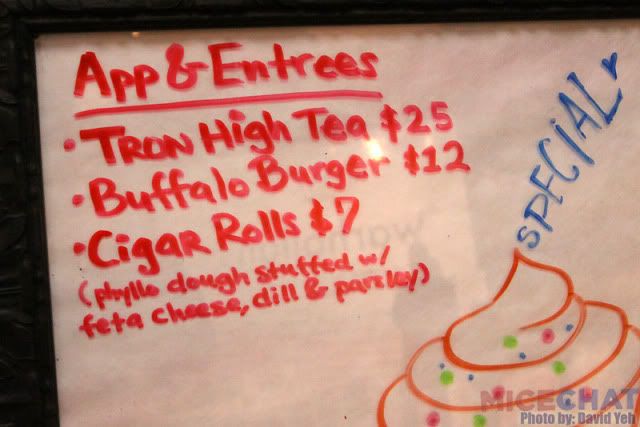 App & Entrees
• TRON High Tea $25
• Buffalo Burger $12
• Cigar Rolls $7
(phyllo dough stuffed w/
feta cheese, dill & parsley)
SPECIAL
MICECHAT
Photo by: David Yeh